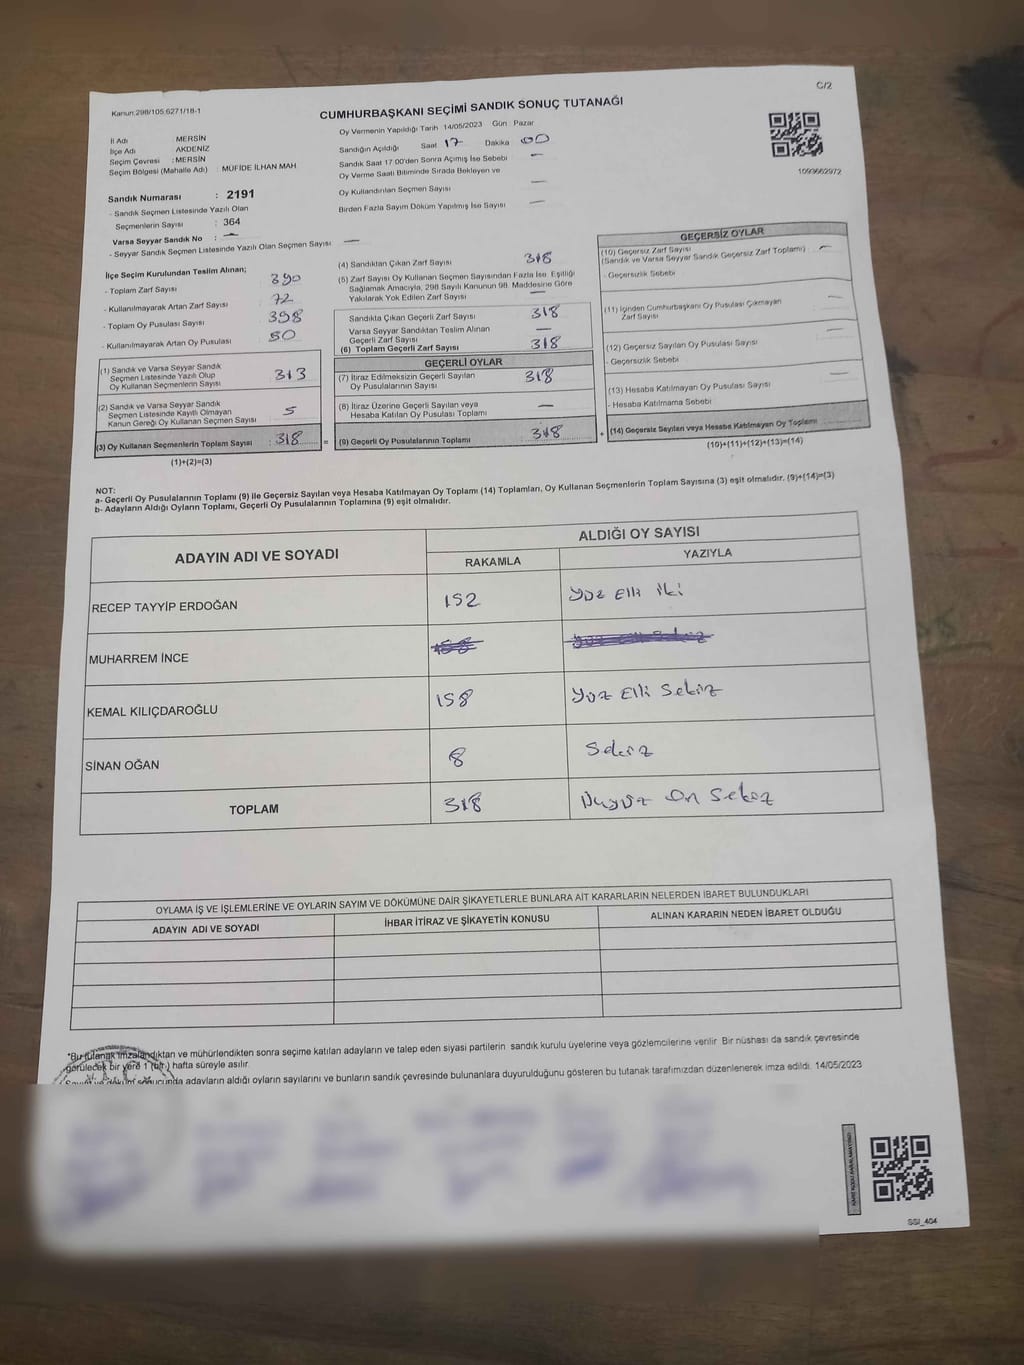 C/2
Kanun:298/105 6271/18-1
CUMHURBAŞKANI SEÇİMİ SANDIK SONUÇ TUTANAĞI
İl Adı MERSİN
İlçe Adı AKDENİZ
Seçim Çevresi : MERSİN
Seçim Bölgesi (Mahalle Adı) : MÜFİDE İLHAN MAH
Oy Vermenin Yapıldığı Tarih 14/05/2023 Gün Pazar
Sandığın Açıldığı Saat 17 Dakika 00
Sandık Saat 17:00'den Sonra Açılmış İse Sebebi —
Oy Verme Saati Bitiminde Sırada Bekleyen ve
Oy Kullandırılan Seçmen Sayısı —
Birden Fazla Sayım Döküm Yapılmış İse Sayısı —
1093662972
Sandık Numarası : 2191
- Sandık Seçmen Listesinde Yazılı Olan
Seçmenlerin Sayısı : 364
Varsa Seyyar Sandık No : —
- Seyyar Sandık Listesinde Yazılı Olan Seçmen Sayısı —
İlçe Seçim Kurulundan Teslim Alınan;
- Toplam Zarf Sayısı 390
- Kullanılmayarak Artan Zarf Sayısı 72
- Toplam Oy Pusulası Sayısı 398
- Kullanılmayarak Artan Oy Pusulası 80
(1) Sandık ve Varsa Seyyar Sandık
Seçmen Listesinde Yazılı Olup
Oy Kullanan Seçmenlerin Sayısı 313
(2) Sandık ve Varsa Seyyar Sandık
Seçmen Listesinde Kayıtlı Olmayan
Kanun Gereği Oy Kullanan Seçmen Sayısı 5
(3) Oy Kullanan Seçmenlerin Toplam Sayısı : 318 =
(1)+(2)=(3)
(4) Sandıktan Çıkan Zarf Sayısı 318
(5) Zarf Sayısı Oy Kullanan Seçmen Sayısından Fazla İse, Eşitliği
Sağlamak Amacıyla, 298 Sayılı Kanunun 98. Maddesine Göre
Yakılarak Yok Edilen Zarf Sayısı —
Sandıkta Çıkan Geçerli Zarf Sayısı 318
Varsa Seyyar Sandıktan Teslim Alınan
Geçerli Zarf Sayısı —
(6) Toplam Geçerli Zarf Sayısı 318
GEÇERLİ OYLAR
(7) İtiraz Edilmeksizin Geçerli Sayılan
Oy Pusulalarının Sayısı 318
(8) İtiraz Üzerine Geçerli Sayılan veya
Hesaba Katılan Oy Pusulası Toplamı —
(9) Geçerli Oy Pusulalarının Toplamı 318 +
GEÇERSİZ OYLAR
(10) Geçersiz Zarf Sayısı —
(Sandık ve Varsa Seyyar Sandık Geçersiz Zarf Toplamı)
- Geçersizlik Sebebi
(11) İçinden Cumhurbaşkanı Oy Pusulası Çıkmayan —
Zarf Sayısı
(12) Geçersiz Sayılan Oy Pusulası Sayısı —
- Geçersizlik Sebebi
(13) Hesaba Katılmayan Oy Pusulası Sayısı —
- Hesaba Katılmama Sebebi
(14) Geçersiz Sayılan veya Hesaba Katılmayan Oy Toplamı
(10)+(11)+(12)+(13)=(14)
NOT:
a- Geçerli Oy Pusulalarının Toplamı (9) ile Geçersiz Sayılan veya Hesaba Katılmayan Oy Toplamı (14) Toplamları, Oy Kullanan Seçmenlerin Toplam Sayısına (3) eşit olmalıdır. (9)+(14)=(3)
b- Adayların Aldığı Oyların Toplamı, Geçerli Oy Pusulalarının Toplamına (9) eşit olmalıdır.
ADAYIN ADI VE SOYADI
ALDIĞI OY SAYISI
RAKAMLA YAZIYLA
RECEP TAYYİP ERDOĞAN 152 Yüz Elli İki
MUHARREM İNCE 158 Yüz Elli Sekiz
KEMAL KILIÇDAROĞLU 158 Yüz Elli Sekiz
SİNAN OĞAN 8 Sekiz
TOPLAM 318 Üçyüz On Sekiz
OYLAMA İŞ VE İŞLEMLERİNE VE OYLARIN SAYIM VE DÖKÜMÜNE DAİR ŞİKAYETLERLE BUNLARA AİT KARARLARIN NELERDEN İBARET BULUNDUKLARI
ADAYIN ADI VE SOYADI İHBAR İTİRAZ VE ŞİKAYETİN KONUSU ALINAN KARARIN NEDEN İBARET OLDUĞU
*Bu tutanak imzalandıktan ve mühürlendikten sonra seçime katılan adayların ve talep eden siyasi partilerin sandık kurulu üyelerine veya gözlemcilerine verilir Bir nüshası da sandık çevresinde
görülecek bir yere 1 (bir) hafta süreyle asılır.
sonucunda adayların aldığı oyların sayılarını ve bunların sandık çevresinde bulunanlara duyurulduğunu gösteren bu tutanak tarafımızdan düzenlenerek imza edildi. 14/05/2023
SSI_404